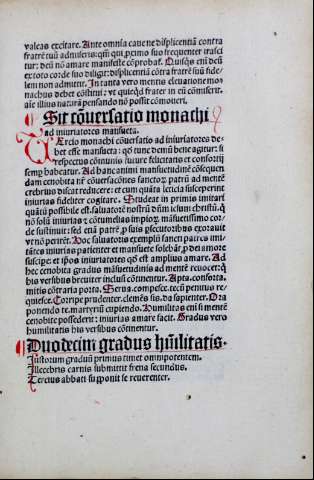 valeas excitare. Ante omnia cave ne displicentiā contra
fratrē tuū admiseris: qm̄ qui primo suo frequenter irasci
tur: deū nō amare manifeste cōprobat̄. Quisq̄s em̄ deū
ex toto corde suo diligit: displicentiā cōtra fratrē suū fide-
lem non admittit. In tanta vero mentis eleuatione mo
nachus debet cōstitui: vt quicq̄d frater in eū cōmiserit.
aut illius naturā pensando nō possit cōmoueri.
Sit cōuersatio monachi
ad iniuriatores mansueta.
Tercio monachi cōuersatio ad iniuriatores de-
bet esse mansueta: q̄ tunc demū bene agitur: si
respectus cōmunis future felicitatis et consortij
semp̱ habeatur. Ad hanc animi mansuetudinē cōsequen
dam cenobita nr̄ cōuersaciōnes sanctorꝝ patrū ad mentē
crebrius discat reducere: et cum quāta leticia susceperint
iniurias fideliter cogitare. Studeat in primis imitari
quātū possibile est saluatorē nostrū dn̄m iesum christū. q̄
nō solū iniurias: ꝛ cōtumelias impioꝝ. māsuetissimo cor-
de sustinuit: sed etiā patrē ꝓ suis ꝑsecutoribus exorauit
vt nō perirēt. Hoc saluatoris exemplū sancti patres imi-
tātes iniurias patienter et mansuete solebāt ꝓ dei amore
suscipe: et ip̄sos iniuriatores q̄d est amplius amare. Ad
hec cenobita gradus māsuetudinis ad mentē reuocet: q̄
his versibus breuiter inclusi cōtinentur. Apta. consorta.
mitis cōtraria porta. Serua. compesce. tecū penitus re-
quiesce. Corripe prudenter. clemēs sis. da sapienter. Ora
ponendo te. martyriū cupiendo. Humilitas em̄ si mentē
cenobite possederit: iniurias amare facit. Gradus vero
humilitatis his versibus cōtinentur.
Duodecim gradus hūilitatis.
Justorum graduū primus timet omnipotentem.
Illecebris carnis submittit frena secundus.
Tercius abbati supponit se reuerenter.